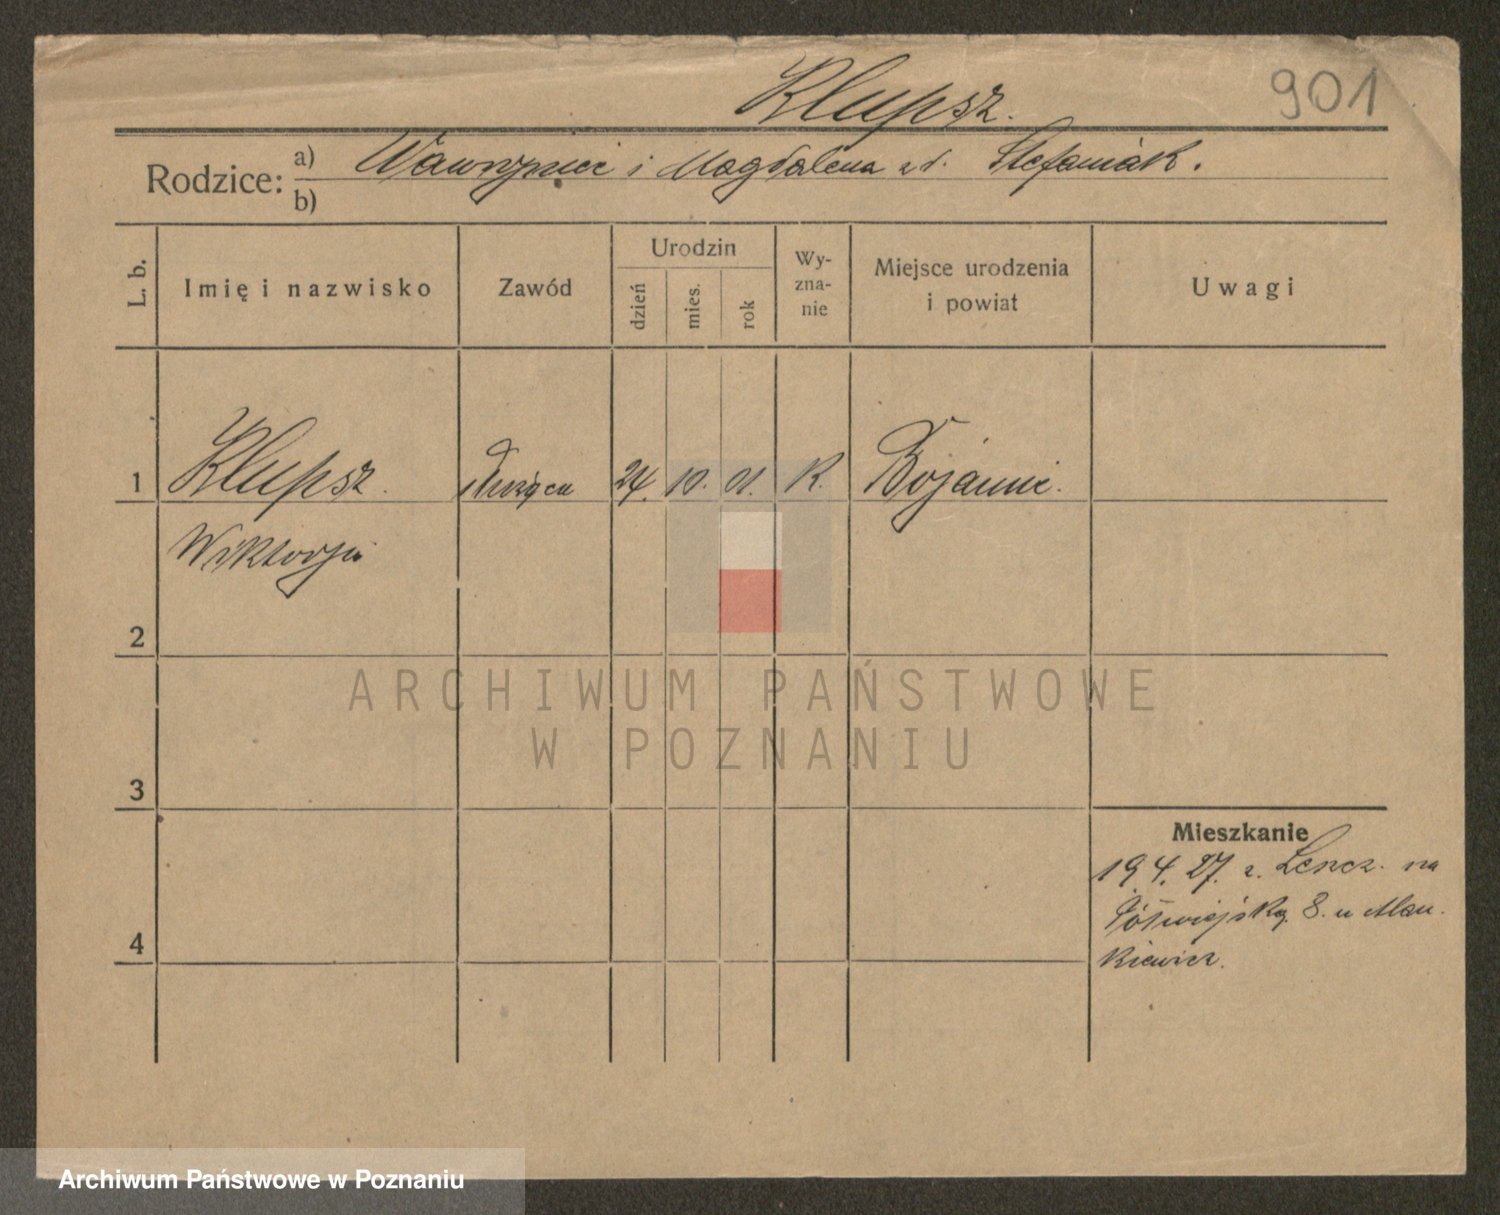 901
Klupsz.
Rodzice: a) Wawrzyniec i Magdalena z d. Stefaniak.
b)
L. b. Imię i nazwisko Zawód Urodzin dzień mies. rok Wy-zna-nie Miejsce urodzenia i powiat Uwagi
1 Klupsz. służąca 24. 10. 01. K. Bojanic.
Wiktorja
2
ARCHIWUM PAŃSTWOWE
W POZNANIU
3
Mieszkanie
19.4.27. z Lencz. na
Półwiejską 8. u Man
4
kiewicz.
Archiwum Państwowe w Poznaniu